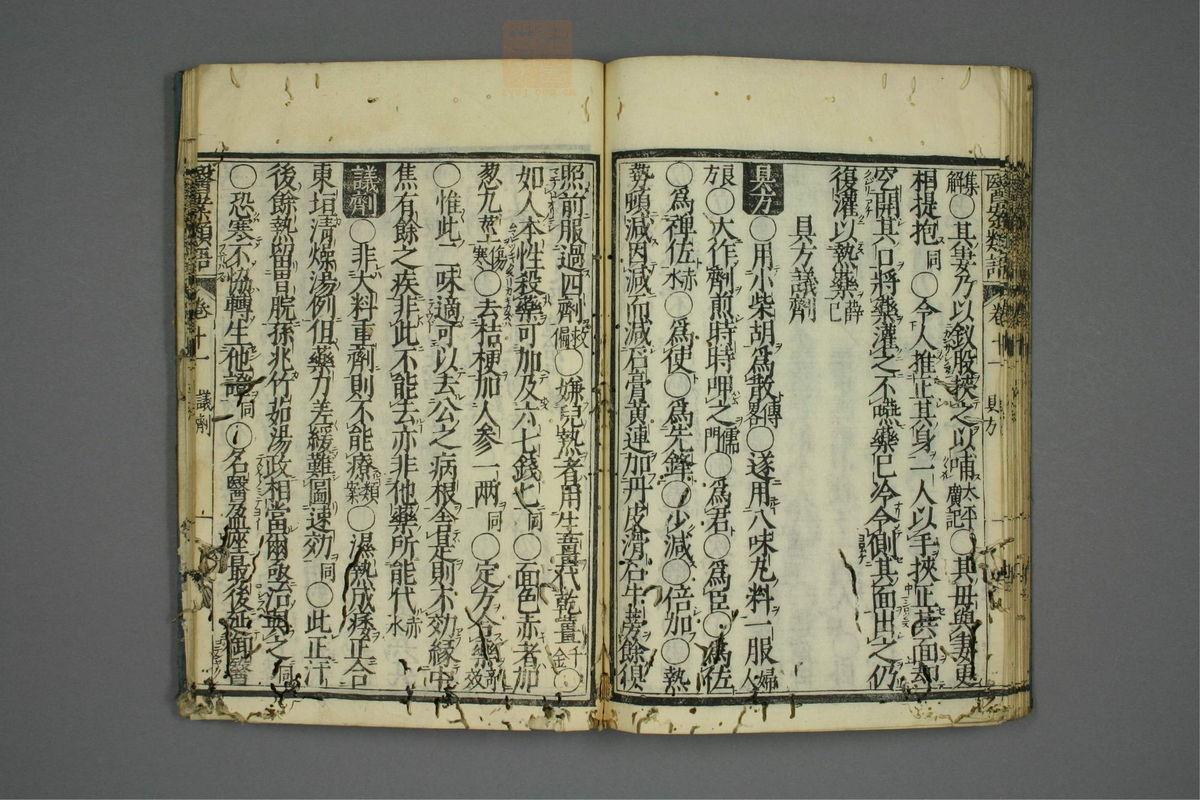 集解○其妻乃以釵股挾之以哺大平廣記○其毋與妻更
相提抱同○令人推正其身一人以手挾正其面却
空開其口將藥灌之不嚥藥已令側其面出之仍
復灌以熱藥薛已
具方議劑
具方○用小柴胡為散傳畧○遂用八味丸料一服婦人
良方○大作劑煎時時呷之儒門○為君○為臣○為佐
○為裨佐赤水○為使○為先鋒○少減○倍加○熱
勢頓減因減而減石膏黄連加丹皮滑石牛蒡餘俱
醫屠類語 卷十一 具方
照前服過四劑救偏○嫌兒熱者用生薑代乾薑千金○
如人本性殺藥可加及六七錢匕同○面色赤者加
葱九莖傷寒○去桔梗加人參一兩同○定方合藥劑效
○惟此二味適可以去公之病根舍是則不効緣中
焦有餘之疾非此不能去亦非他藥所能代赤水
議劑○非大料重劑則不能療類案○濕熱成痿正合
東垣清燥湯例但藥力差緩難圖速効同○此正汗
後餘熱留胃脘孫兆竹如湯政相當爾亟治與之同
○恐寒不協轉生他證同○名醫盈座最後延御醫
卷十一 議劑